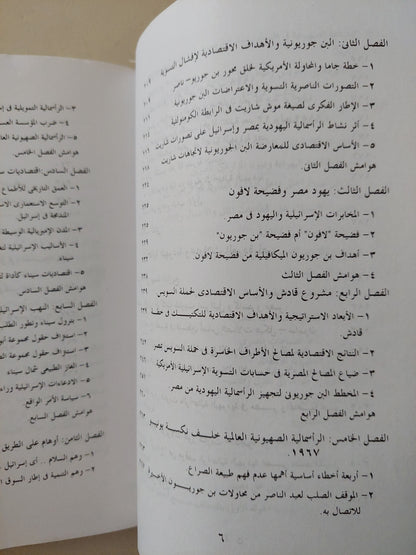 الفصل الثانى: البن جوريونية والأهداف الاقتصادية لإفشال التسوية
١- خطة جاما والمحاولة الأمريكية لخلق محور بن جوريو- ناصر
٢- التصورات الناصرية التسوية والاعتراضات البن جوريونية
٣- الإطار الفكرى لصيغة موش شاريت فى الرابطة الكومنولثية
٤- أثر نشاط الرأسمالية اليهودية بمصر وإسرائيل على تصورات شاريت
٥- الأساس الاقتصادى للمعارضة البن الجوريونية لاتجاهات شاريت
هوامش الفصل الثانى.
الفصل الثالث: يهود مصر وفضيحة لافون
١- المخابرات الإسرائيلية واليهود فى مصر
٢- فضيحة "لافون" أم فضيحة "بن جوريون"
٣- أهداف بن جوريون الميكافيلية من فضيحة لافون.
٤- هوامش الفصل الثالث
الفصل الرابع: مشروع قادش والأساس الاقتصادى لحملة السويس
١- الأبعاد الاستراتيجية والأهداف الاقتصادية للتكييف وخطة
قادش.
٢- النتائج الاقتصادية لمصالح الأطراف الخاسرة فى حملة السويس مصر
٣- ضياع المصالح المصرية فى حسابات التسوية الإسرائيلية الأمريكية
٤- المخطط البن جوريونى لتهجير الرأسمالية اليهودية من مصر
هوامش الفصل الرابع
الفصل الخامس: الرأسمالية الصهيونية العالمية خلف نكسة يونيو
١٩٦٧.
١- أربعة أخطاء أساسية أهمها عدم فهم طبيعة الصراع
٢- الموقف الصلب لعبد الناصر من محاولات بن جوريون الأخيرة
للاتصال به.
٦
٣- الرأسمالية التمويلية فى
٤- ضرب المؤسسة
٥- الرأسمالية الصهيونية
هوامش الفصل الخامس.
الفصل السادس: اقتصاديات
١- العمق التاريخى للأطماع
٢- التوسع الاستعمارى
المتدفقة فى إسرائيل.
٣- المدن الإمبريالية الوسيطة
٤- الأساليب الإسرائيلية
سيناء.
٥- اقتصاديات سيناء كأداة
هوامش الفصل السادس.
الفصل السابع: النهب الإسرائيلى
١- بترول سيناء وتطور
٢- استنزاف حقول مجموعة
٣- استنزاف حقول
٤- الغاز الطبيعى شمال
٥- الادعاءات الإسرائيلية
٦- سياسة الأمر الواقع.
هوامش الفصل السابع.
الفصل الثامن: أوهام على الطريق
١- وهم السلام .. أى إسرائيل
٢- التنمية فى إطار السوق